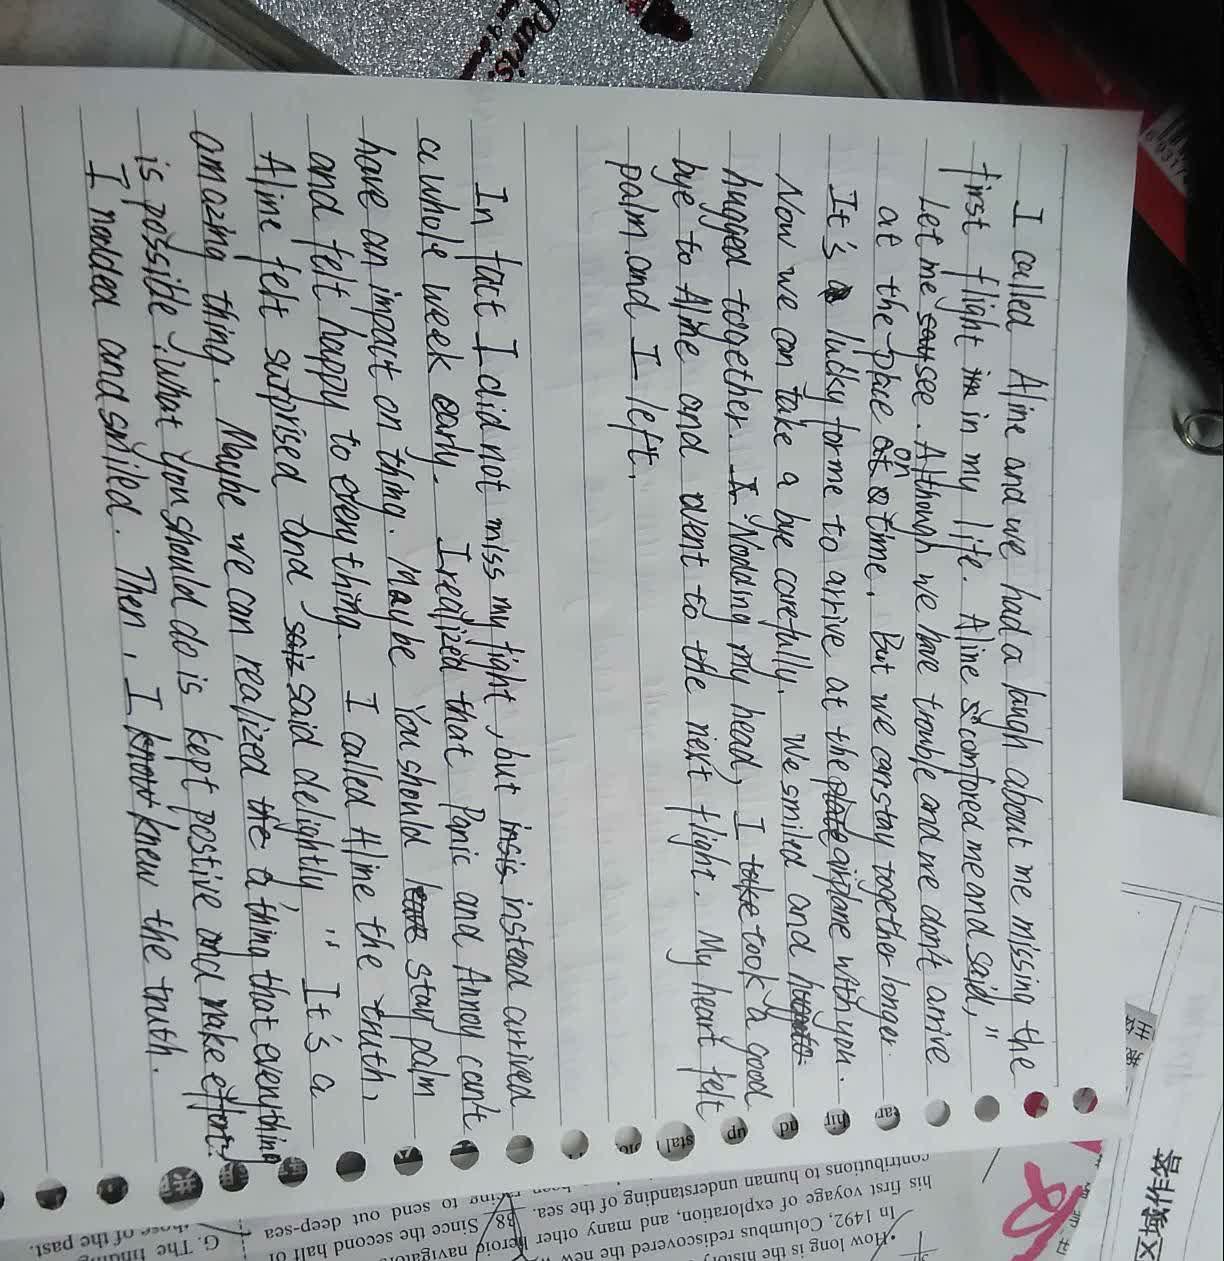 I called Aline and we had a laugh about me missing the
first flight in in my life. Aline comfored me and said, "
Let me see. Although we have trouble and we don't arrive
at the place on time. But we can stay together longer.
It's lucky for me to arrive at the airplane with you.
Now we can take a bye carefully. We smiled and
hugged together. Nodding my head, I took a good
bye to Aline and went to the next flight. My heart felt
palm and I left.
In fact I did not miss my fight, but instead arrived
a whole week early. I realized that Panic and Annoy can't
have an impact on thing. Maybe You should stay palm
and felt happy to everything. I called Aline the truth,
Aline felt surprised and said delightly " It's a
amazing thing. Maybe we can realized a thing that everything
is possible, what you should do is kept postive and make efforts
I nodded and smiled. Then, I knew the truth.
Paris
区域作答
How long is the history
In 1492, Columbus rediscovered the new
his first voyage of exploration, and many other heroic navigators
contributions to human understanding of the sea. 38 Since the second half of
to send out deep-sea
G. The finding
of the past.